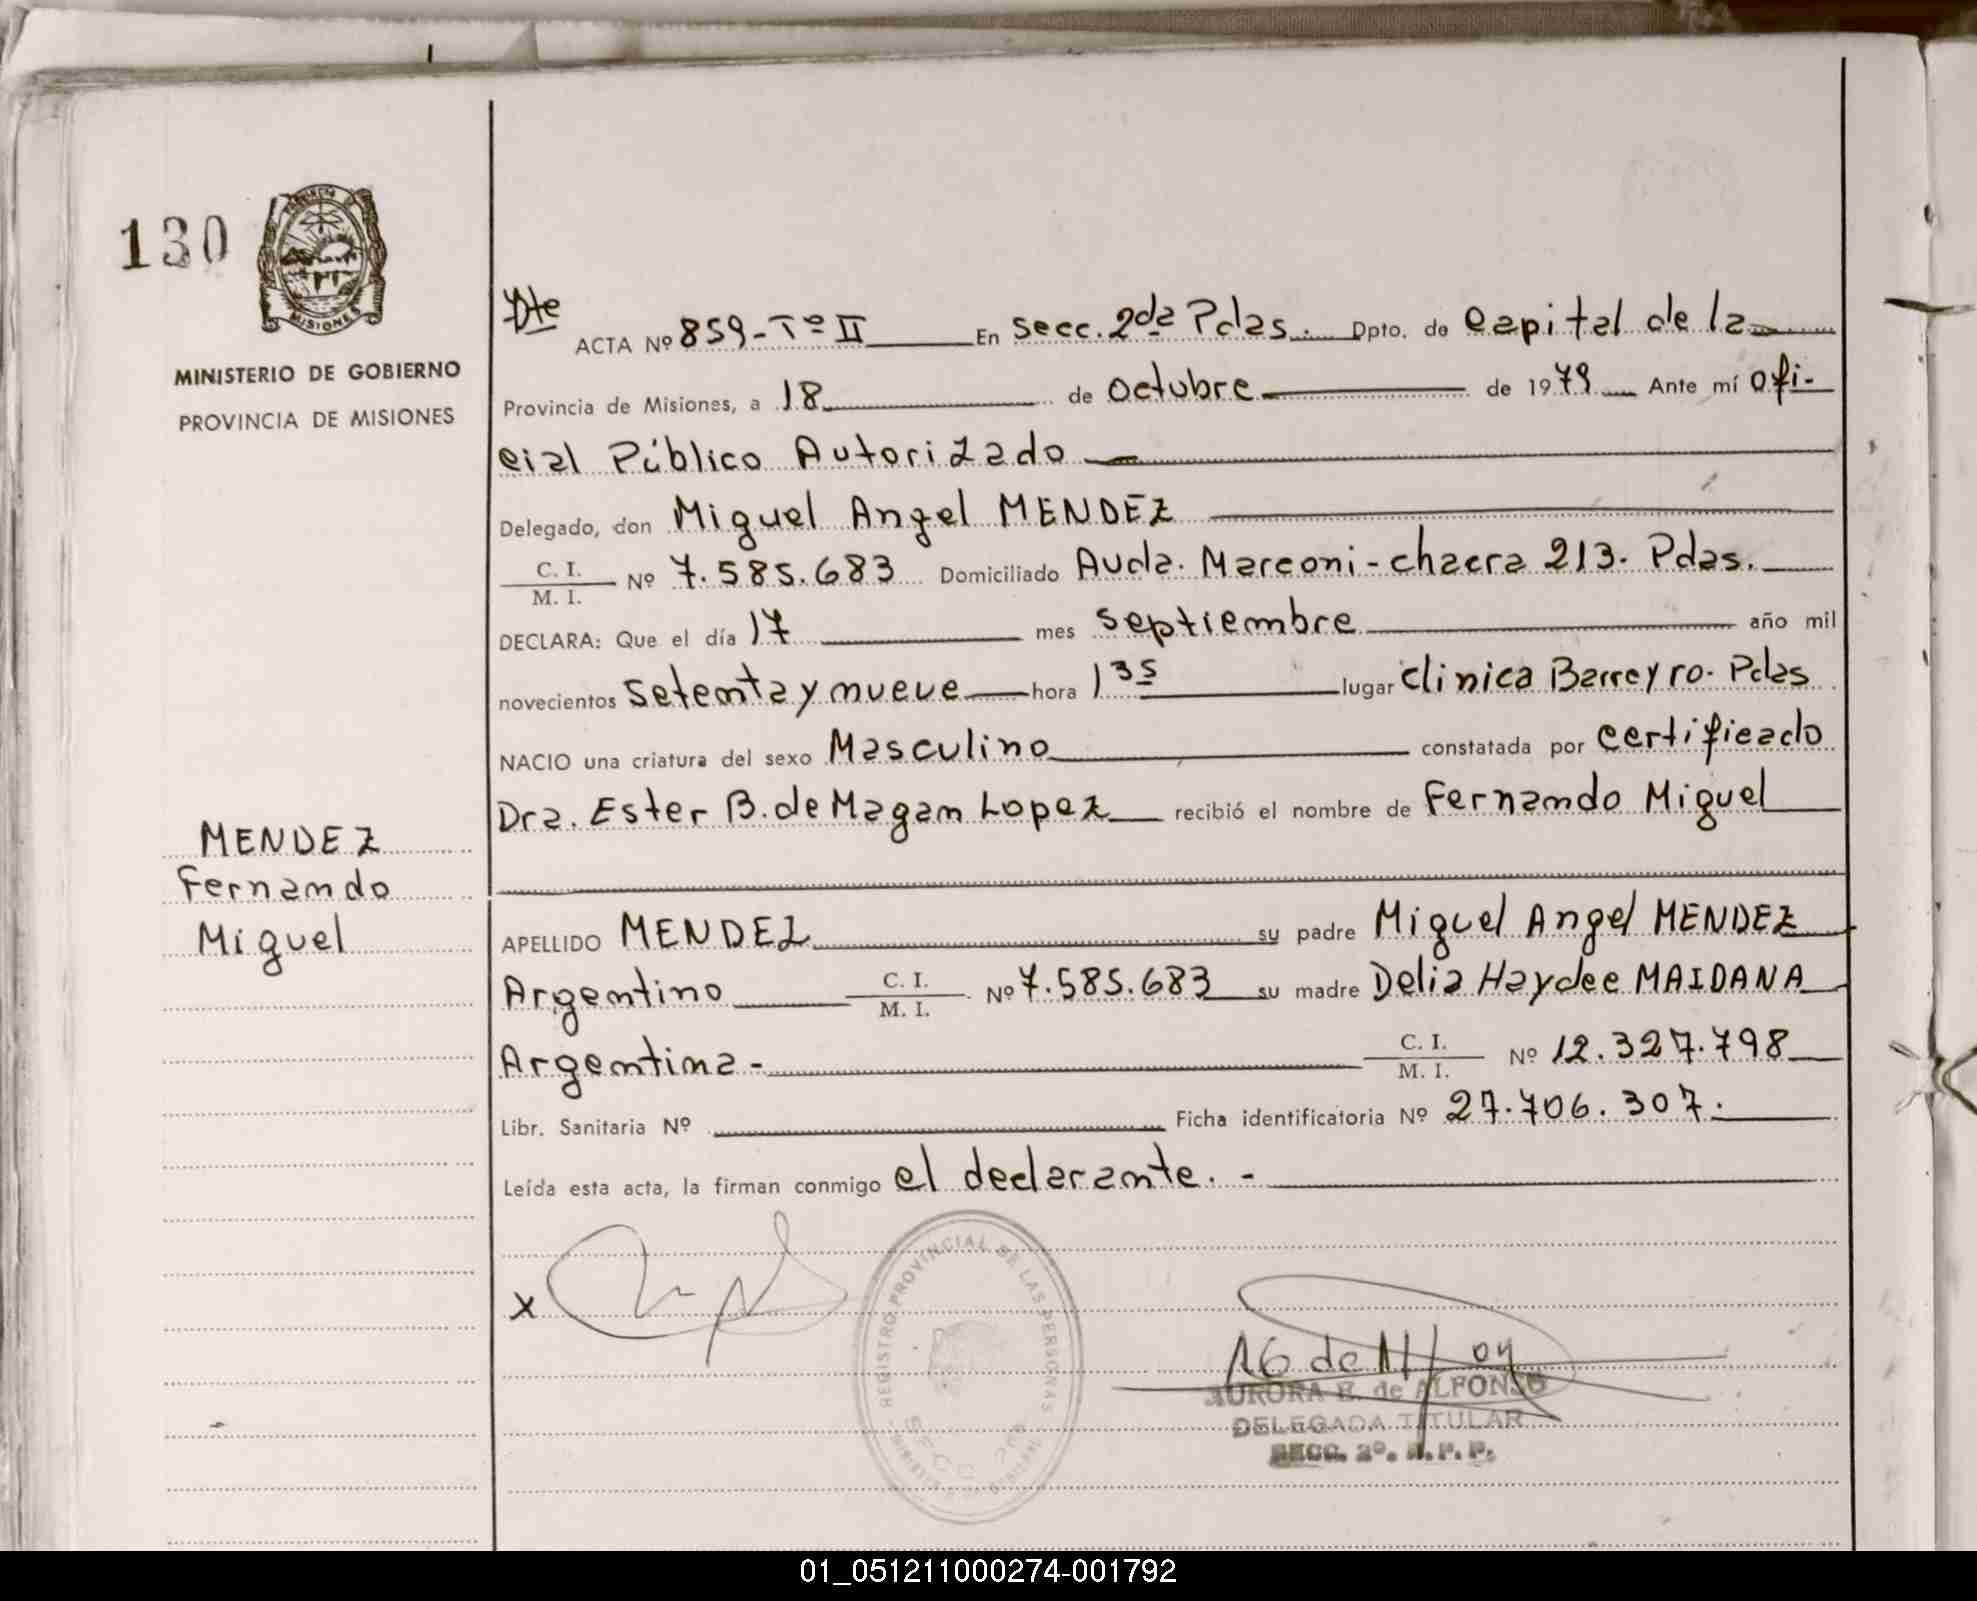 130
PROVINCIA
MISIONES
MINISTERIO DE GOBIERNO
PROVINCIA DE MISIONES
Dte
ACTA Nº 859-Tº II En Secc. 2da Pdas. Dpto. de Capital de la
Provincia de Misiones, a 18 de Octubre de 1979 Ante mí Ofi-
cial Público Autorizado
Delegado, don Miguel Angel MENDEZ
C. I.
M. I. Nº 7.585.683 Domiciliado Avda. Marconi - chacra 213. Pdas.
DECLARA: Que el día 17 mes Septiembre año mil
novecientos Setenta y nueve hora 1 35 lugar Clinica Barreyro. Pdas
NACIO una criatura del sexo Masculino constatada por Certificado
Dra. Ester B. de Magan Lopez recibió el nombre de Fernando Miguel
MENDEZ
Fernando
Miguel
APELLIDO MENDEZ su padre Miguel Angel MENDEZ
Argentino C. I.
M. I. Nº 7.585.683 su madre Delia Haydee MAIDANA
Argentina - C. I.
M. I. Nº 12.327.798
Libr. Sanitaria Nº Ficha identificatoria Nº 27.706.307.
Leída esta acta, la firman conmigo el declarante. -
x
REGISTRO PROVINCIAL DE LAS PERSONAS
SECC 2da
AURORA E. de ALFONSO
DELEGADA TITULAR
SECC. 2º. R. P. P.
01_051211000274-001792